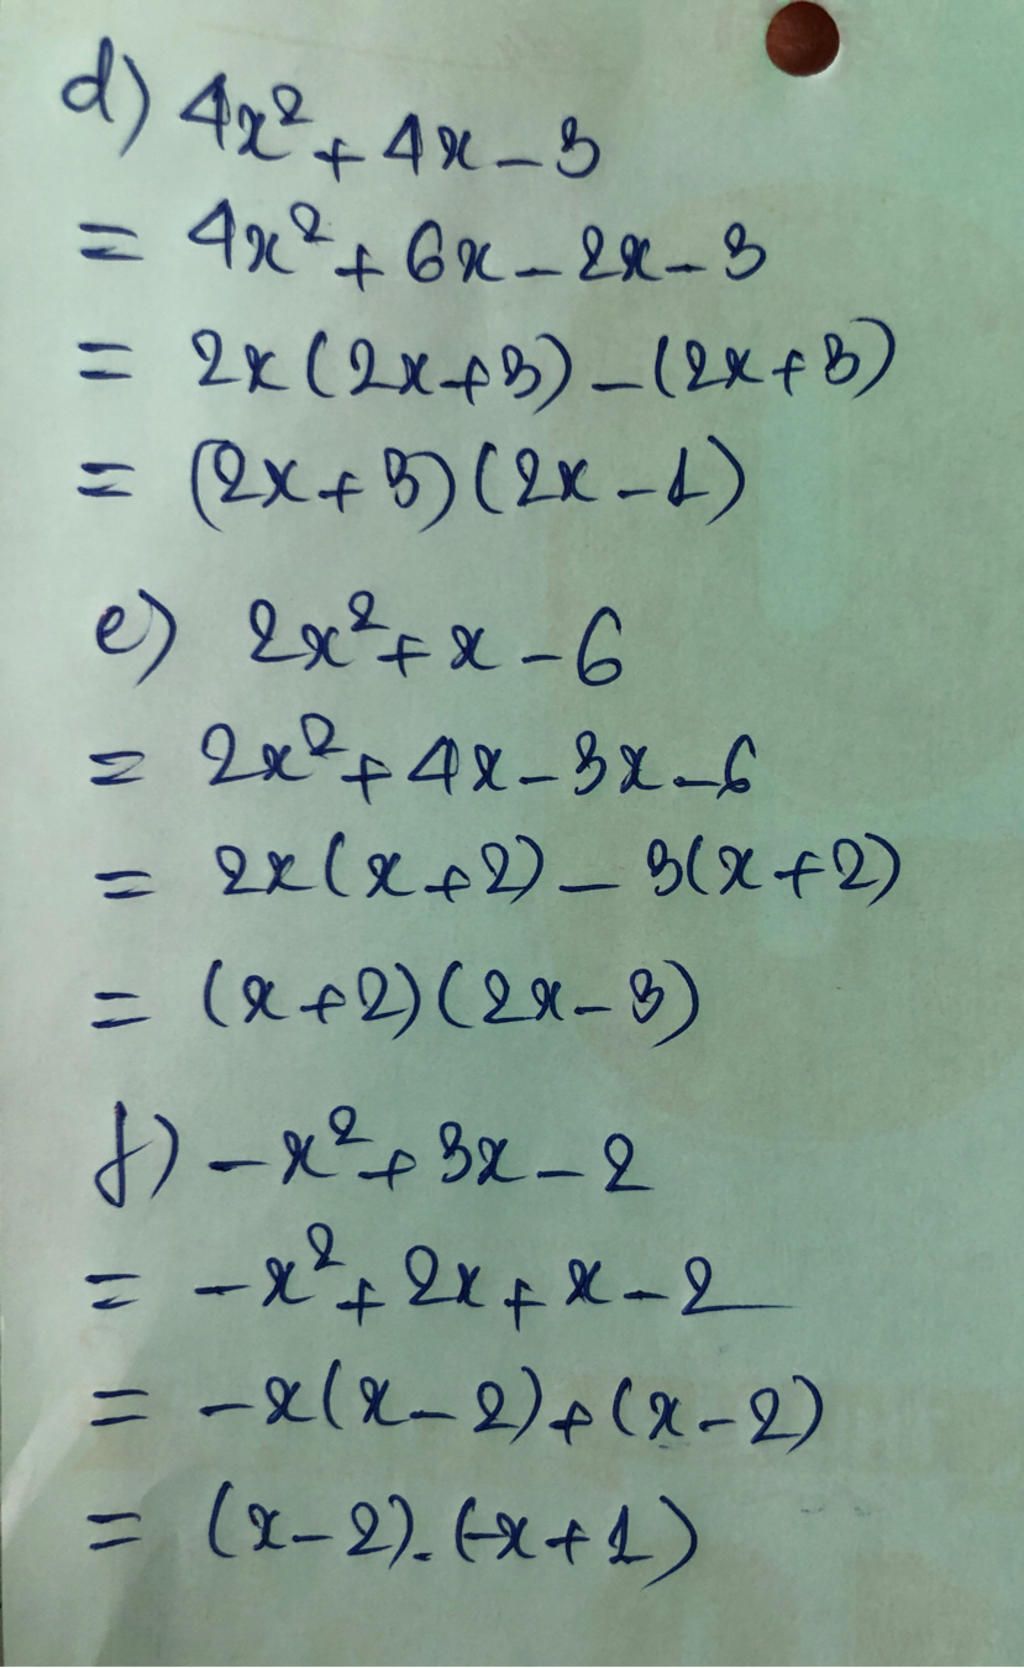 d) 4x² + 4x - 3
= 4x² + 6x - 2x - 3
= 2x(2x+3) - (2x+3)
= (2x+3)(2x-1)
e) 2x² + x - 6
= 2x² + 4x - 3x - 6
= 2x(x+2) - 3(x+2)
= (x+2)(2x-3)
f) -x² + 3x - 2
= -x² + 2x + x - 2
= -x(x-2) + (x-2)
= (x-2).(-x+1)